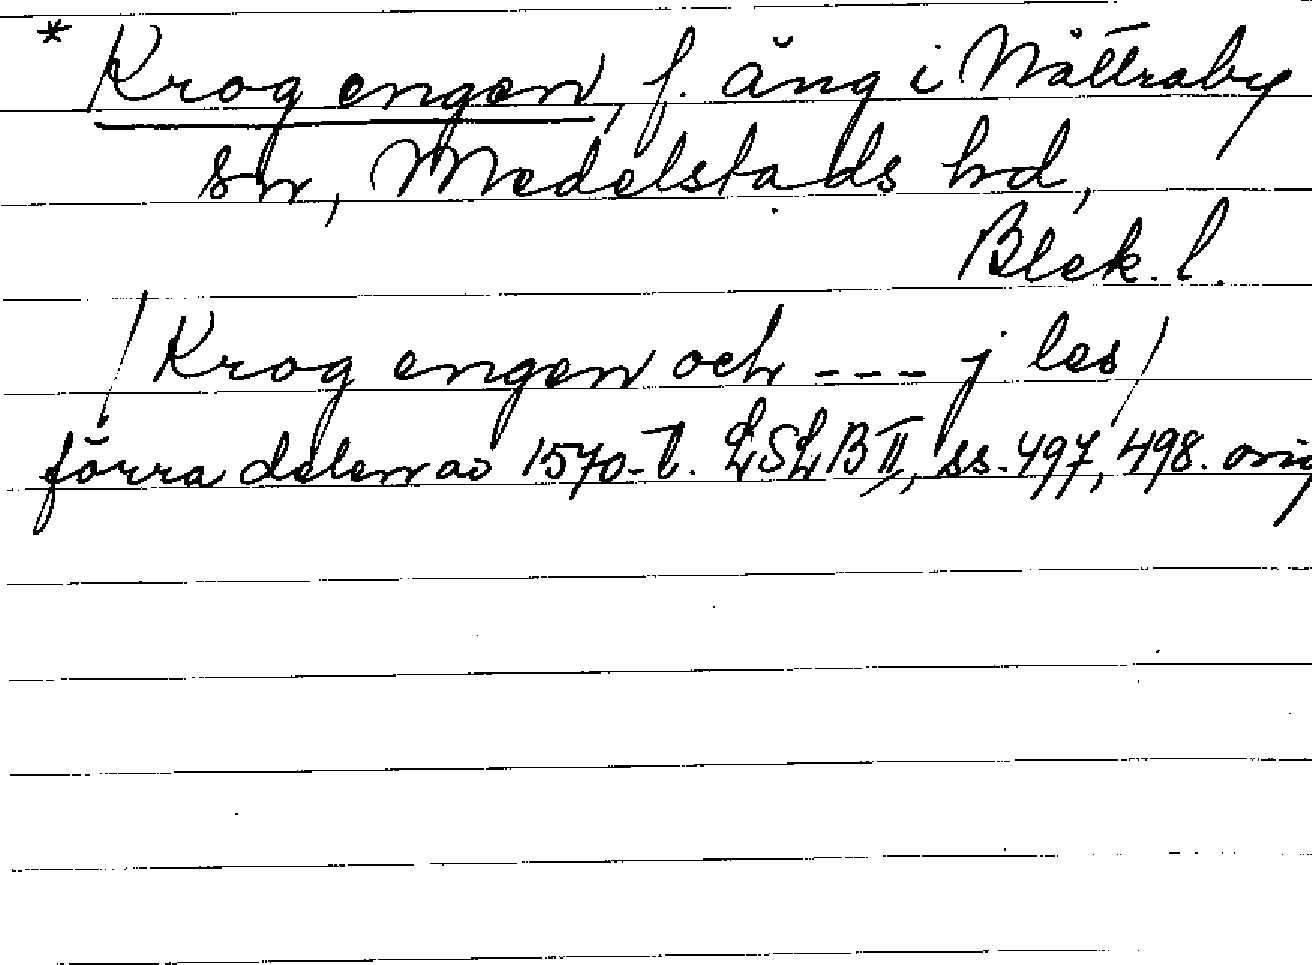 * Krog engen, f. äng i Nättraby
sn, Medelstads hd,
Blek. l.
/Krog engen och --- j les/
förra delen av 1570-t. LSLB II, ss. 497, 498. orig